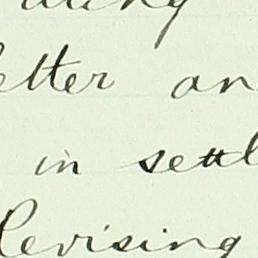 etter an
in settl
Revising